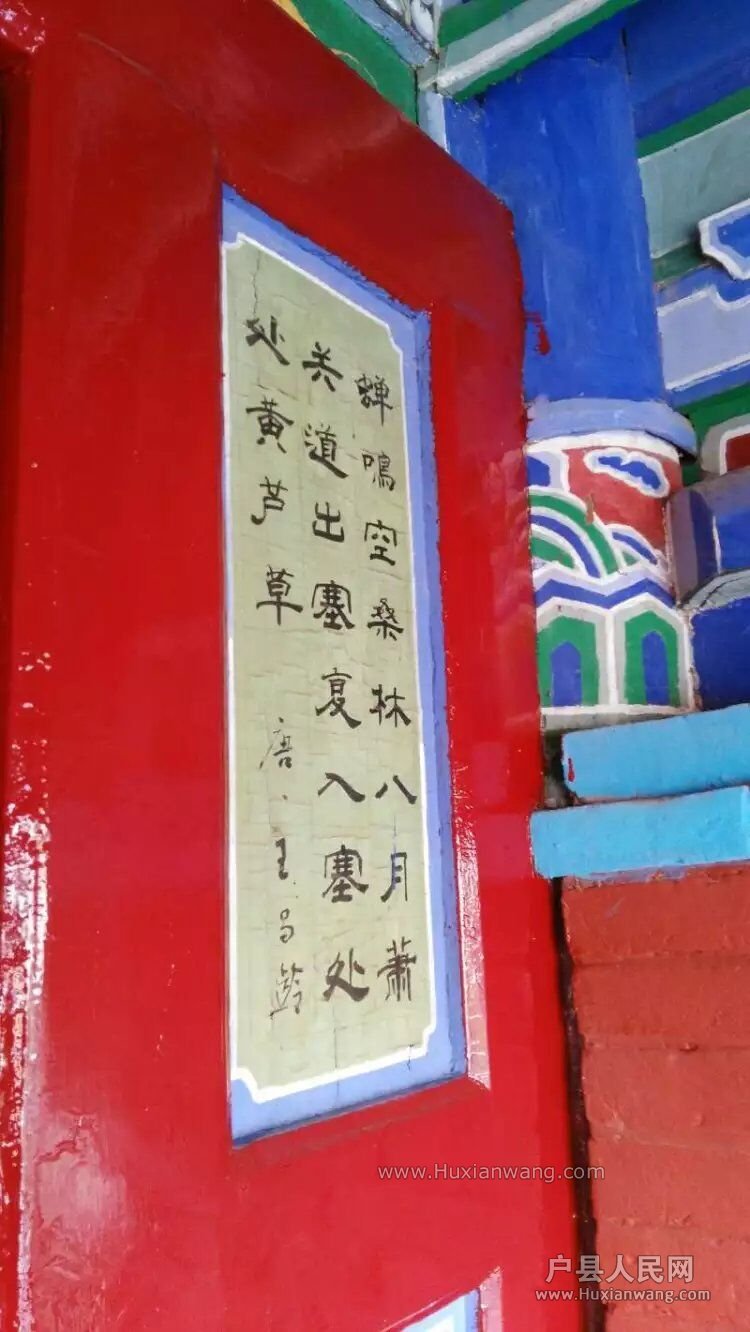 蝉鸣空桑林八月萧
关道出塞复入塞处
处黄芦草
唐、王昌龄
www.Huxianwang.com
户县人民网
www.Huxianwang.com